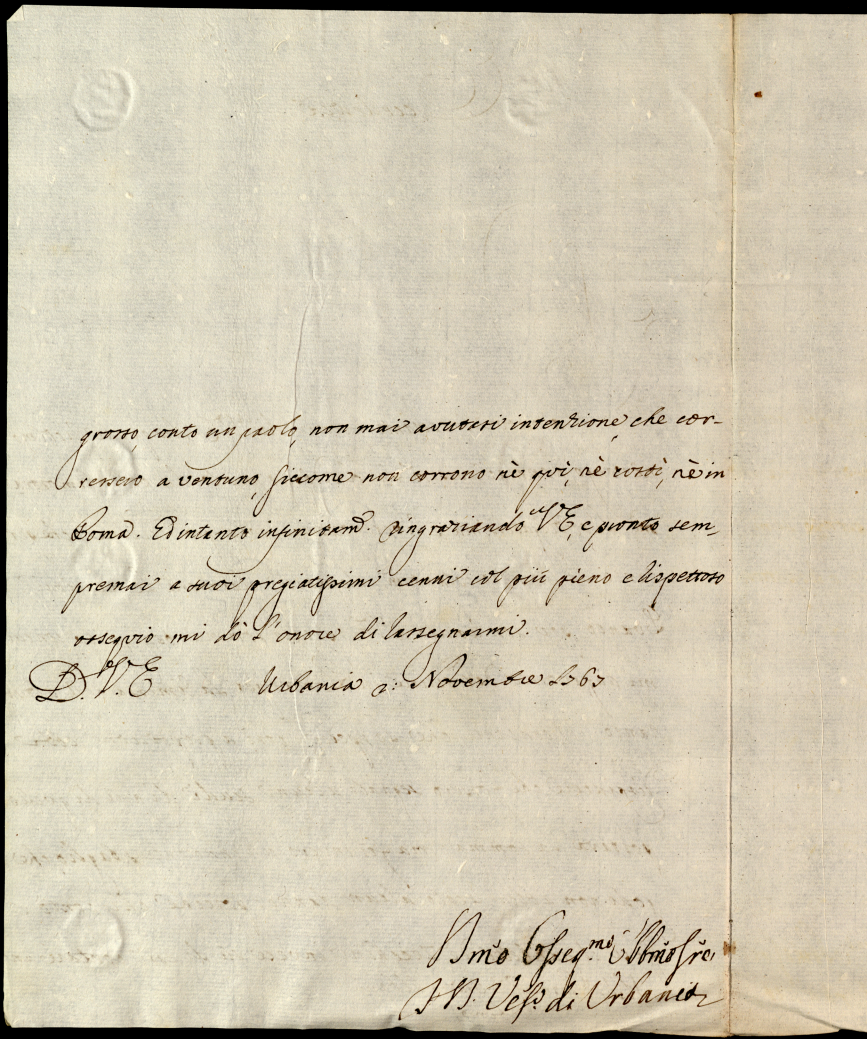 grosso conto un paolo, non mai avutasi intenzione, che cor-
ressero a ventuno, siccome non corrono nè quì, nè costì, nè in
Roma. Ed intanto infinitam.e ringraziando VE, e pronto sem-
premai a suoi pregiatissimi cenni col più pieno e rispettoso
ossequio mi dò l'onore di rassegnarmi.
D. V. E Urbania 2: Novembre 1767
Osseq.mo
Vesc.o di Urbania